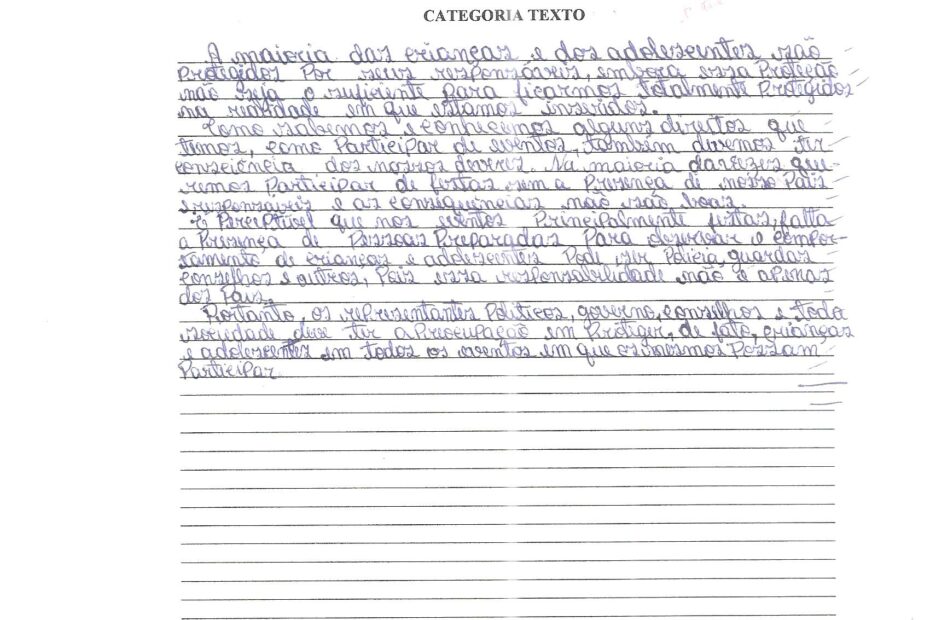 CATEGORIA TEXTO
A maioria das crianças e dos adolescentes são
Protegidos Por seus responsáveis, embora essa Proteção
não seja o suficiente para ficarmos totalmente Protegidos
na realidade em que estamos inseridos.
Como sabemos e conhecemos alguns direitos que
temos, como Participar de eventos, também devemos ter
consciência dos nossos deveres. Na maioria das vezes que-
remos Participar de festas sem a Presença de nosso Pais
e responsáveis e as consequências não são boas.
É Perceptível que nos eventos Principalmente festas, falta
a Presença de Pessoas Preparadas Para observar o compor-
tamento de crianças e adolescentes Pode ser Polícia, guardas
conselhos e outros, Pois essa responsabilidade não é apenas
dos Pais.
Portanto, os representantes Políticos, governo, conselhos e toda
sociedade deve ter a Preocupação em Proteger, de fato, crianças
e adolescentes em todos os eventos em que os mesmos Possam
Participar